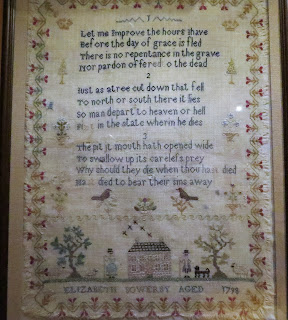 1
Let me Improve the hours Ihave
Before the day of grace is fled
There is no repentance in the grave
Nor pardon offered to the dead
2
Iust as a tree cut down that fell
To north or south there it lies
So man depart to heaven or hell
in the state wherin he dies
3
The pit it mouth hath opened wide
To swallow up its carelefs prey
Why should they die when thou hast died
Hast died to bear their sins away
ELIZABETH SOWERBY AGED